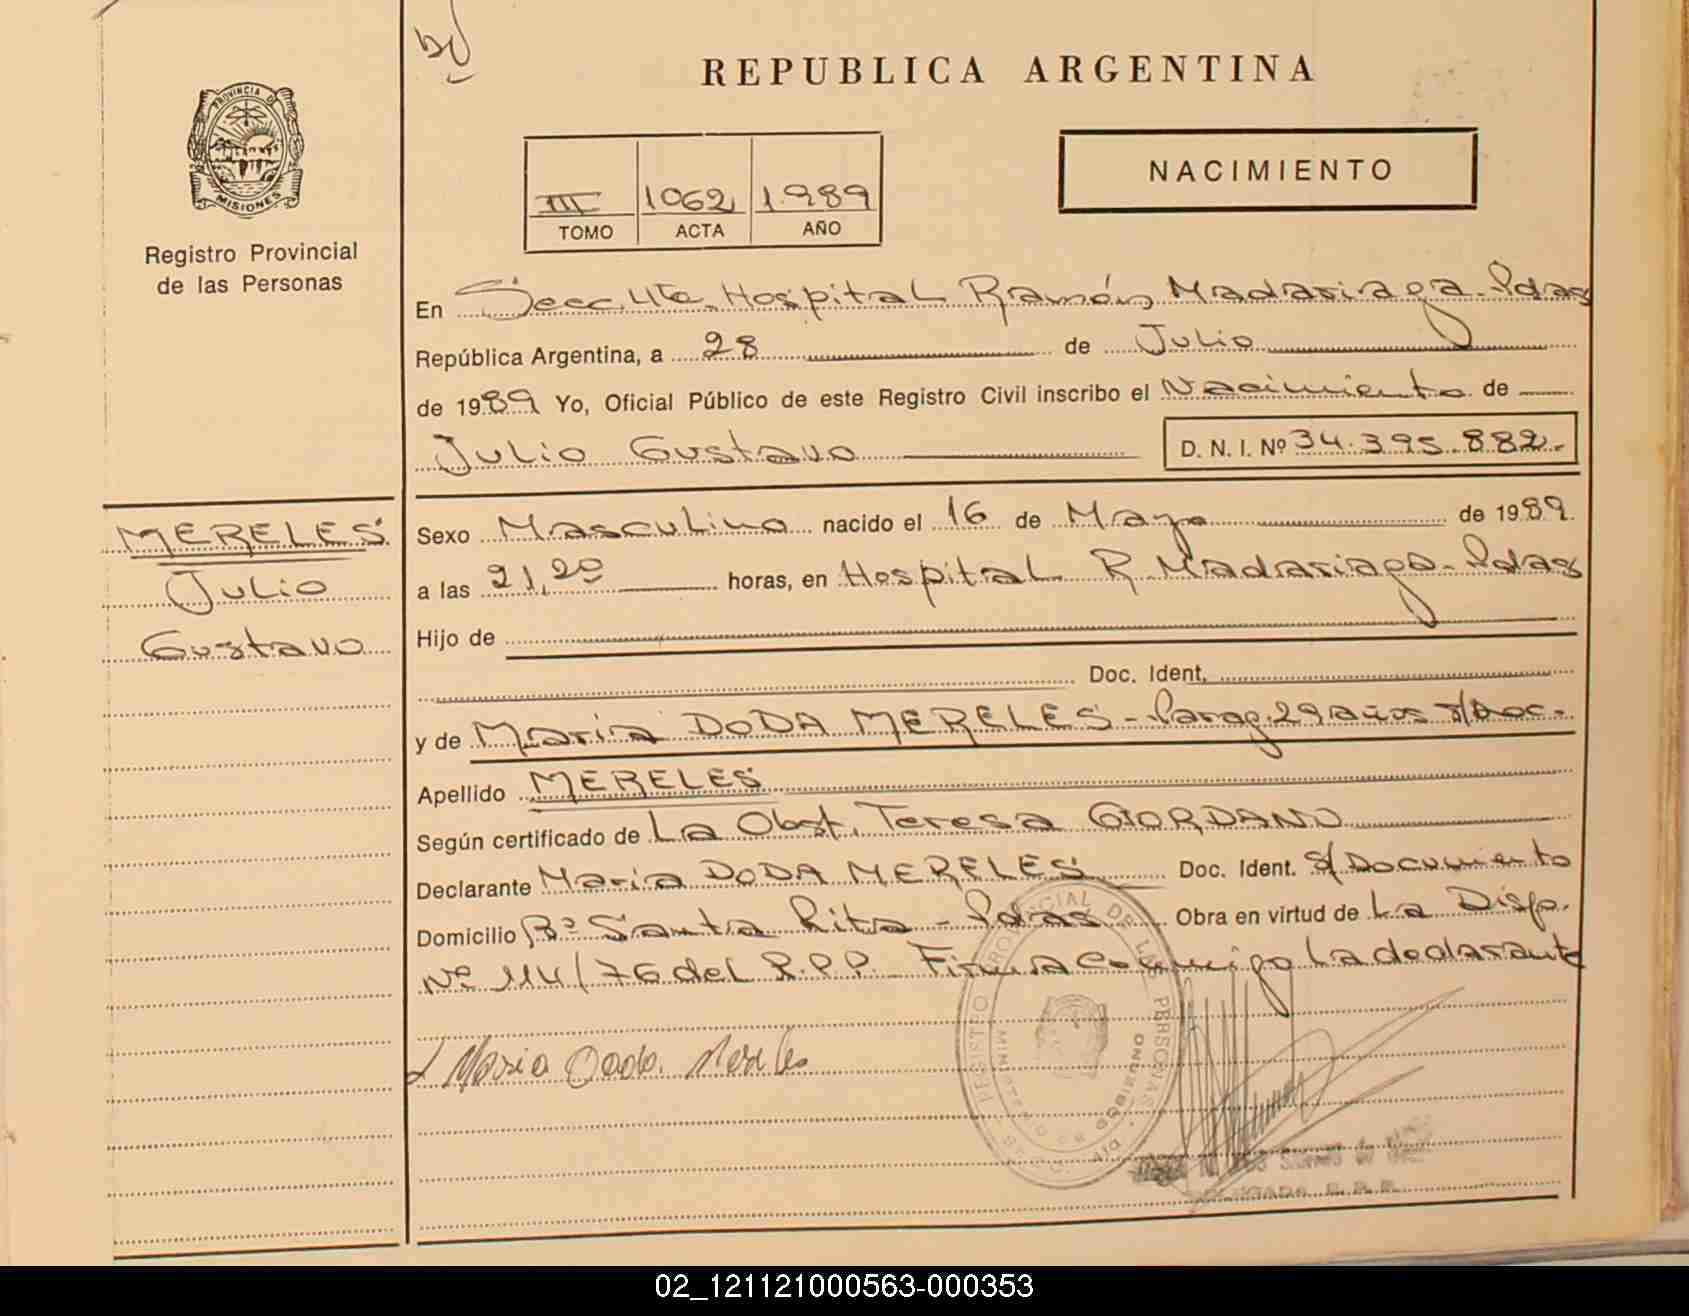 REPUBLICA ARGENTINA
PROVINCIA DE
MISIONES
Registro Provincial
de las Personas
III 1062 1.989
TOMO ACTA AÑO
NACIMIENTO
En Secc. 4ta. Hospital Ramón Madariaga - Pdas
República Argentina, a 28 de Julio
de 1989 Yo, Oficial Público de este Registro Civil inscribo el Nacimiento de
Julio Gustavo D. N. I. Nº 34.395.882.-
MERELES
Julio
Gustavo
Sexo Masculino nacido el 16 de Mayo de 1989.
a las 21,20 horas, en Hospital R. Madariaga - Pdas
Hijo de
Doc. Ident.
y de Maria DODA MERELES - Parag. 29 años s/Doc.-
Apellido MERELES
Según certificado de La Obst. Teresa GIORDANO
Declarante Maria DODA MERELES Doc. Ident. s/Documento
Domicilio Bº Santa Rita - Pdas Obra en virtud de La Disp.
Nº 114/76 del R.P.P. Firma Conmigo La declarante
REGISTRO PROVINCIAL DE LAS PERSONAS
Maria Doda Mereles
02_121121000563-000353